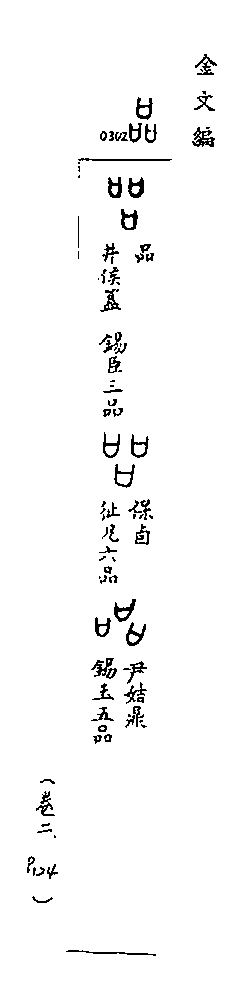 金文編
品 0302
品
品 井侯簋
錫臣三品
品
保卣
征兄六品
品
尹姞鼎
錫玉五品
（卷二、P124）